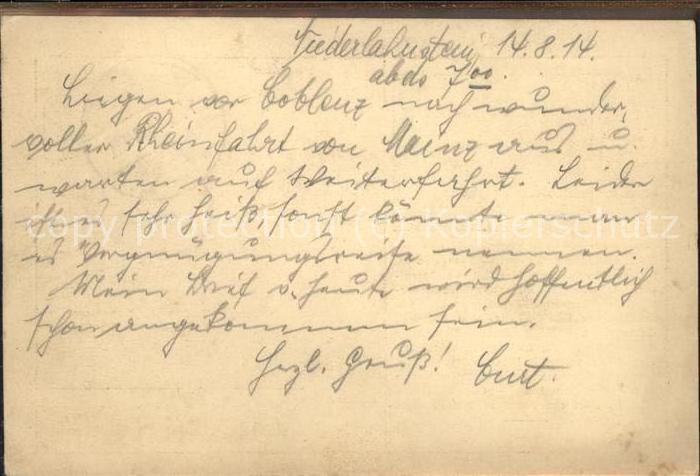 Niederlahnstein, 14.8.14.
abds 7 00.
Liegen vor Coblenz nach wunder-
voller Rheinfahrt von Mainz aus u.
warten auf Weiterfahrt. Leider
ist es sehr heiß, sonst könnte man
es Vergnügungsreise nennen.
Mein Brief v. heute wird hoffentlich
schon angekommen sein.
Herzl. Gruß! Curt.
copy protection (c) Kopierschutz